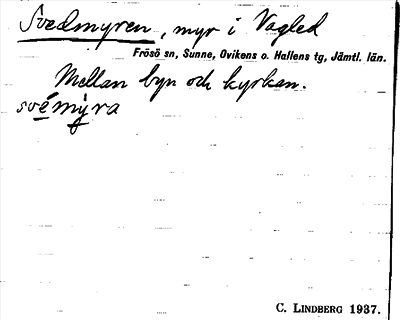 Svedmyren, myr i Vagled
Frösö sn, Sunne, Ovikens o. Hallens tg, Jämtl. län.
Mellan byn och kyrkan.
svémỳra
C. LINDBERG 1937.